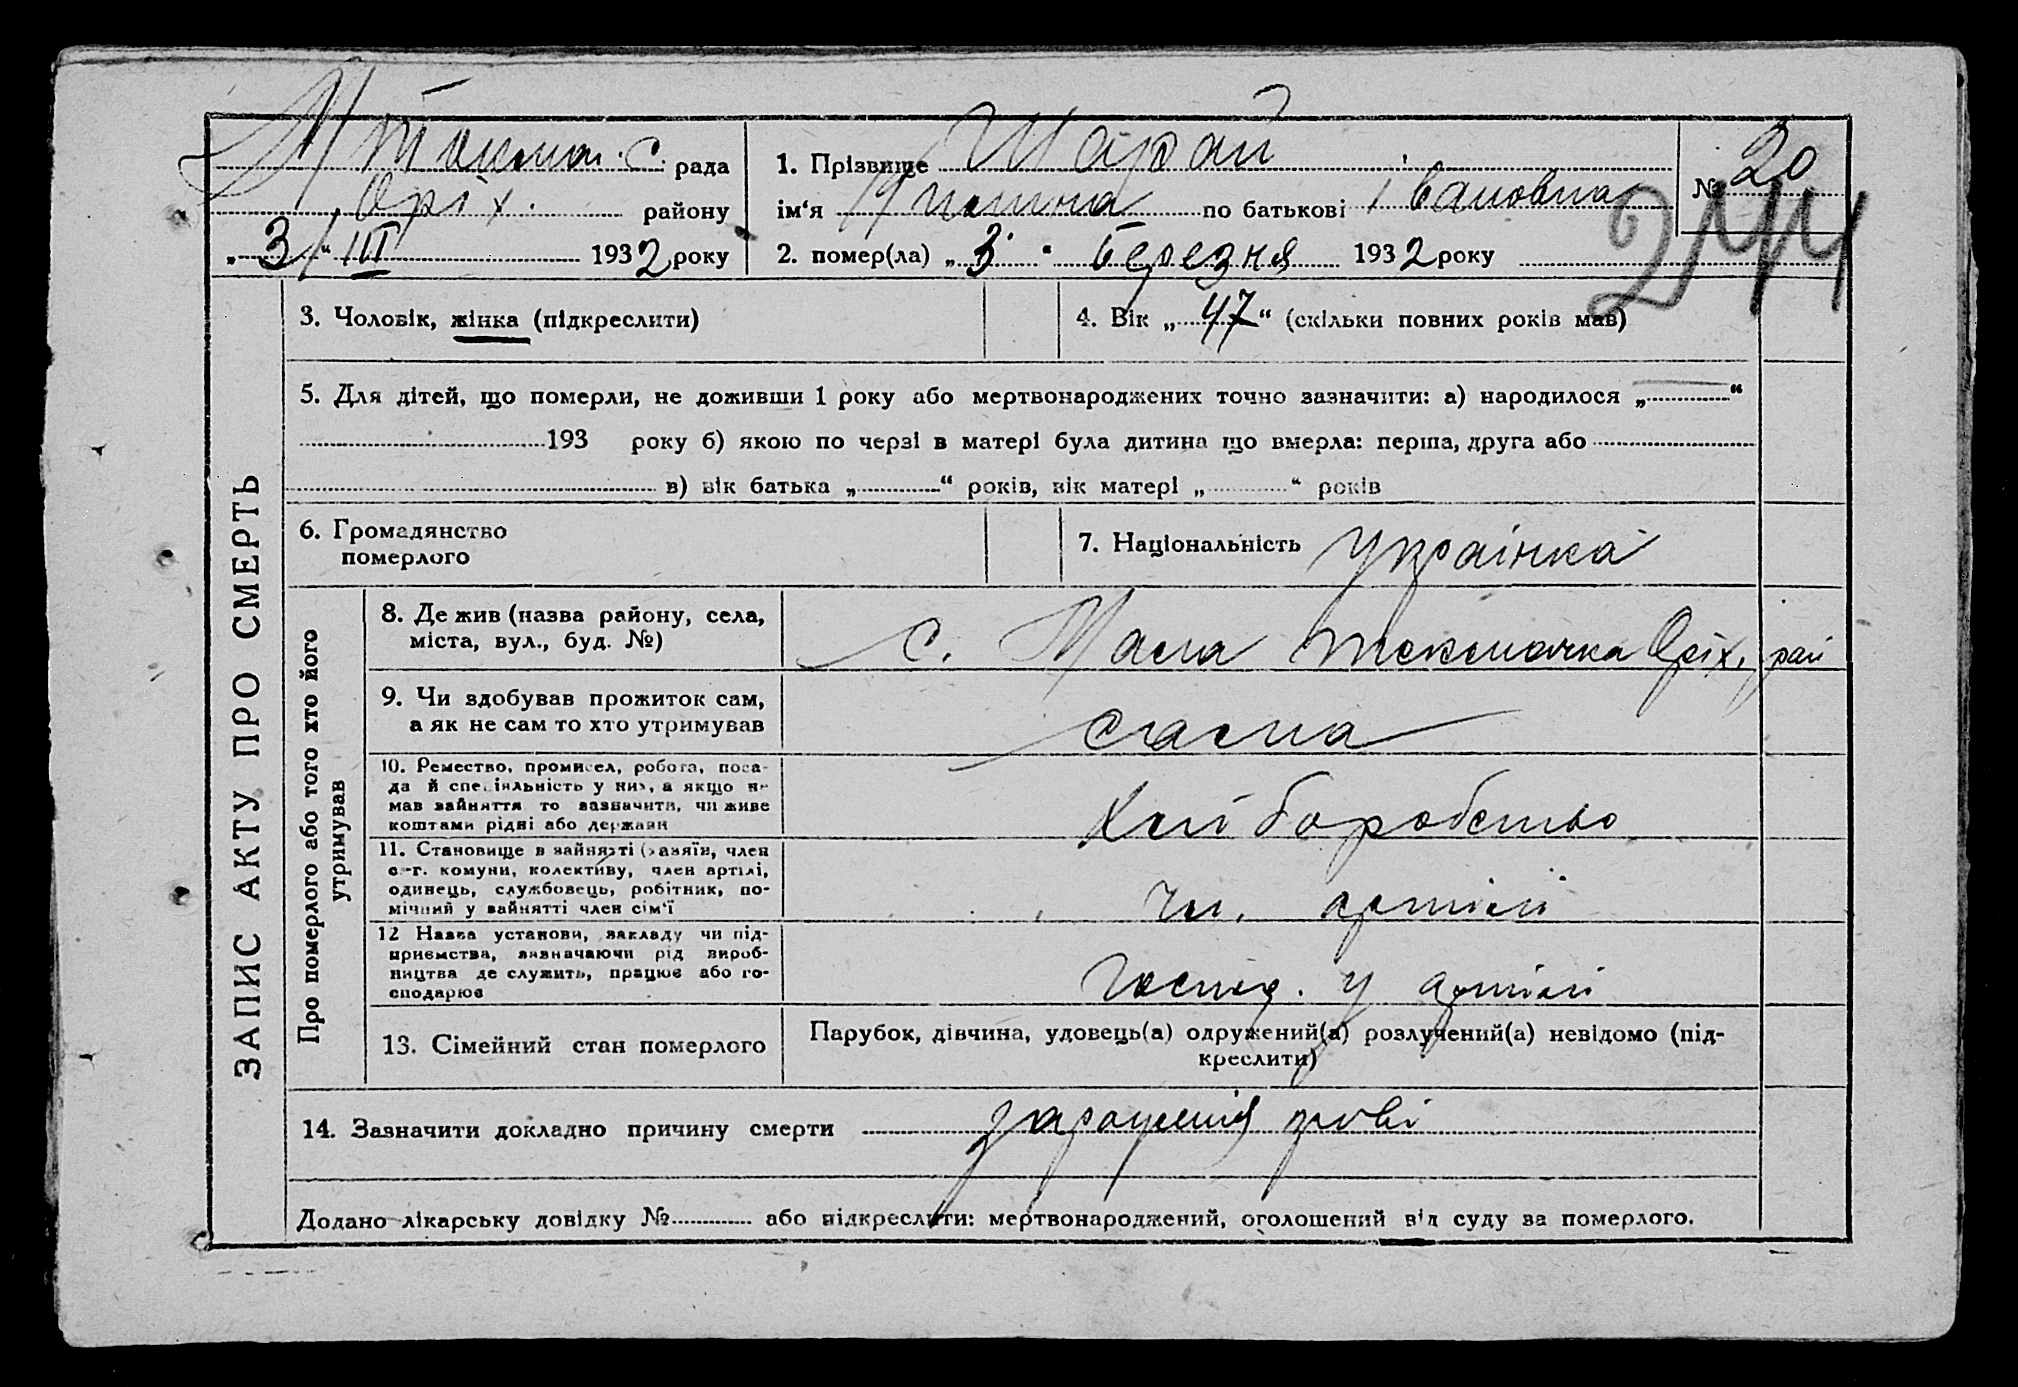 М Токма. С. рада
Оріх. району
„3“ III 1932 року
1. Прізвище Шарай
ім‘я по батькові Івановна
№ 20
244
2. помер(ла) „3“ березня 1932 року
ЗАПИС АКТУ ПРО СМЕРТЬ
3. Чоловік, жінка (підкреслити)
4. Вік „47“ (скільки повних років мав)
5. Для дітей, що померли, не доживши 1 року або мертвонароджених точно зазначити: а) народилося „ “
193 року б) якою по черзі в матері була дитина що вмерла: перша, друга або
в) вік батька „ “ років, вік матері „ “ років
6. Громадянство
померлого
7. Національність Українка
Про померлого або того хто його
утримував
8. Де жив (назва району, села,
міста, вул., буд. №)
с. Мала Токмачка Оріх. рай
9. Чи здобував прожиток сам,
а як не сам то хто утримував
сама
10. Ремество, промисел, робота, поса-
да й спеціяльність у них, а якщо не
мав зайняття то зазначити, чи живе
коштами рідні або держави
Хліборобство
11. Становище в зайнятті (хазяїн, член
с-г. комуни, колективу, член артілі,
одинець, службовець, робітник, по-
мічний у зайнятті член сім‘ї
чл. артілі
12 Назва установи, закладу чи під-
приємства, зазначаючи рід вироб-
ництва де служить, працює або го-
сподарює
Господ. у артілі
13. Сімейний стан померлого
Парубок, дівчина, удовець(а) одружений(а) розлучений(а) невідомо (під-
креслити)
14. Зазначити докладно причину смерти
Додано лікарську довідку № або підкреслити: мертвонароджений, оголошений від суду за померлого.